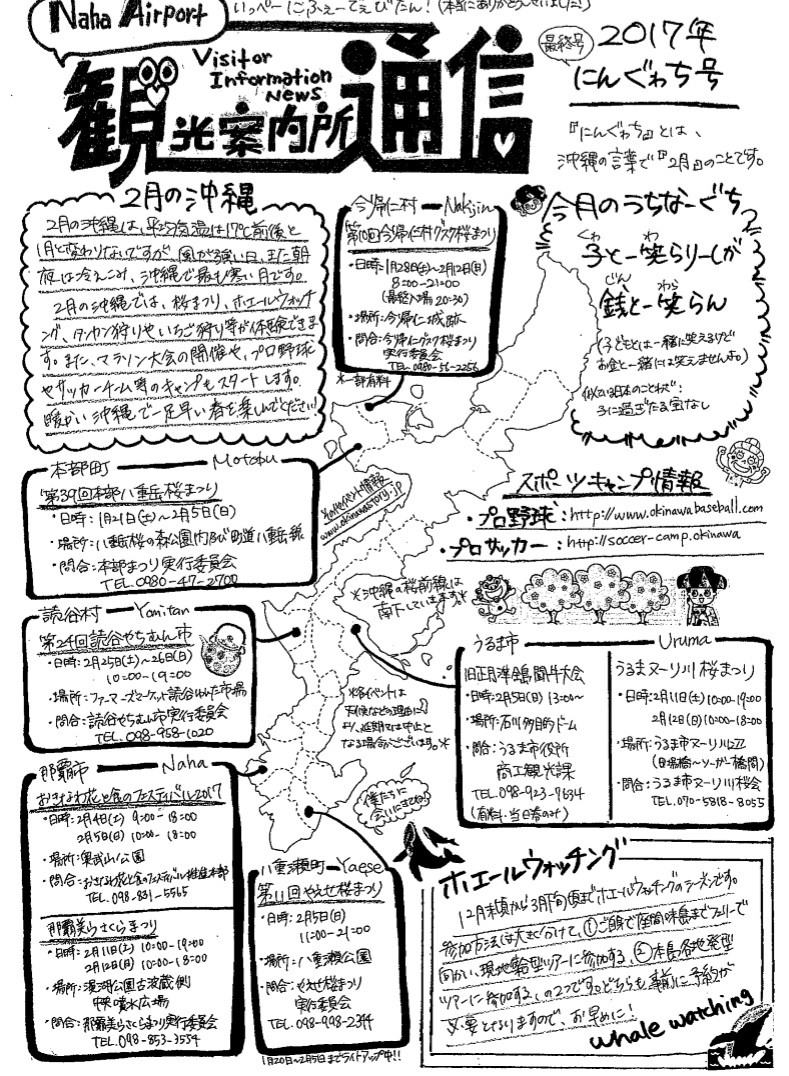 Naha Airport
いっぺーにふぇーでーびたん!(本当にありがとうございました!)
Visitor
Information
News
観光案内所通信
最終号
2017年
にんぐゎち号
『にんぐゎち』とは、
沖縄の言葉で『2月』のことです。
2月の沖縄
2月の沖縄は、平均気温は17℃前後と
1月と変わりないですが、風が強い日、また朝
夜は冷えこみ、沖縄で最も寒い月です。
2月の沖縄では、桜まつり、ホエールウォッチ
ング、タンカン狩りやいちご狩り等が体験できま
す。また、マラソン大会の開催や、プロ野球
やサッカーチーム等のキャンプもスタートします。
暖かい沖縄で一足早い春を楽しんでください!
今帰仁村 Nakijin
第10回今帰仁村グスク桜まつり
・日時:1月28日(土)~2月12日(日)
8:00-21:00
(最終入場20:30)
・場所:今帰仁城跡
・問合:今帰仁グスク桜まつり
実行委員会
TEL 0980-56-2256
※一部有料
今月のうちなーぐち
子とー笑らりーしが
くゎ わら
銭とー笑らん
じん わら
(子どもとは一緒に笑えるけど
お金と一緒には笑えませんよ。)
似ている日本のことわざ:
子に過ぎたる宝なし
本部町 Motobu
第39回本部八重岳桜まつり
・日時:1月21日(土)~2月5日(日)
・場所:八重岳桜の森公園内及び町道八重岳線
・問合:本部まつり実行委員会
TEL.0980-47-2700
その他イベント情報
www.okinawastory.jp
スポーツキャンプ情報
・プロ野球:http://www.okinawabaseball.com
・プロサッカー:http://soccer-camp.okinawa
※沖縄の桜前線は
南下していきます※
読谷村 Yomitan
第24回読谷やちむん市
・日時:2月25日(土)~26日(日)
10:00-19:00
・場所:ファーマーズマーケット読谷ゆんた市場
・問合:読谷やちむん市実行委員会
TEL.098-958-1020
※各イベントは
天候などの理由に
より、延期または中止と
なる場合がございます。※
うるま市 Uruma
旧正月準全島闘牛大会
・日時:2月5日(日)13:00~
・場所:石川多目的ドーム
・問合:うるま市役所
商工観光課
TEL 098-923-7634
(有料・当日券のみ)
うるまヌーリ川桜まつり
・日時:2月11日(土)10:00-19:00
2月12日(日)10:00-18:00
・場所:うるま市ヌーリ川沿
・問合:うるま市ヌーリ川桜会
TEL.090-5818-8055
那覇市 Naha
おきなわ花と食のフェスティバル2017
・日時:2月4日(土) 9:00-18:00
2月5日(日) 10:00-18:00
・場所:奥武山公園
・問合:おきなわ花と食のフェスティバル推進本部
TEL.098-851-5565
那覇美らさくらまつり
・日時:2月11日(土)10:00-19:00
2月12日(日)10:00-18:00
・場所:漫湖公園古波蔵側
中央噴水広場
・問合:那覇美らさくらまつり実行委員会
TEL.098-853-3554
八重瀬町 Yaese
第11回やえせ桜まつり
・日時:2月5日(日)
11:00-21:00
・場所:八重瀬公園
・問合:やえせ桜まつり
実行委員会
TEL.098-998-2344
1月20日~2月5日までライトアップ中!!
僕たちに
会いにきてね
ホエールウォッチング
12月末頃から3月下旬頃までホエールウォッチングのシーズンです。
参加方法は大きく分けて、①ご自身で座間味島までフェリーで
向かい、現地発着型ツアーに参加する、②本島各地発型
ツアーに参加する、の2つです。どちらも事前に予約が
必要となりますので、お早めに!
whale watching